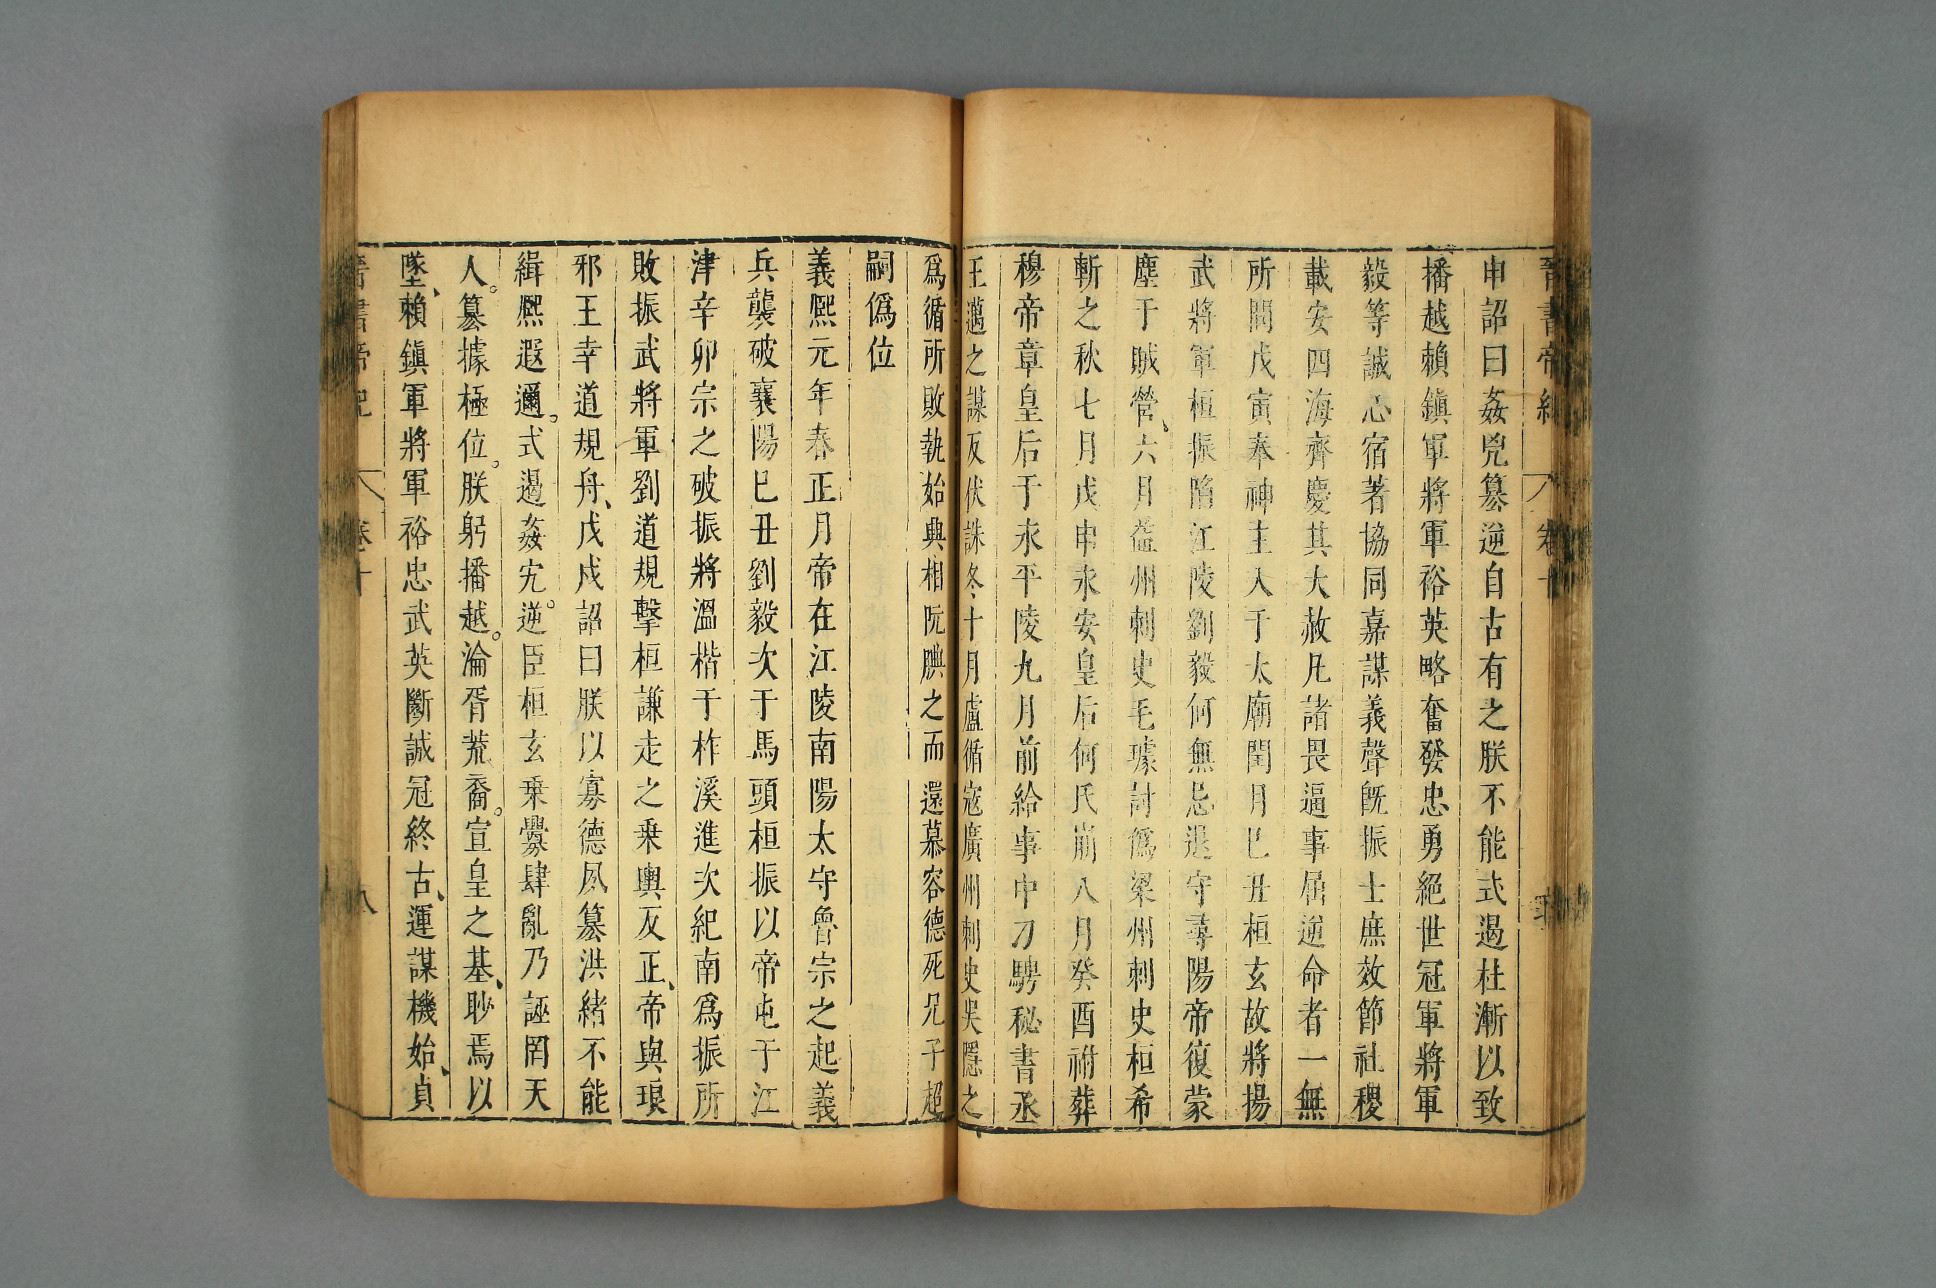 晉書帝紀 卷十
申詔曰姦兇篡逆自古有之朕不能式遏杜漸以致
播越賴鎮軍將軍裕英略奮發忠勇絕世冠軍將軍
毅等誠心宿著協同嘉謀義聲旣振士庶效節社稷
載安四海齊慶其大赦凡諸畏逼事屈逆命者一無
所問戊寅奉神主入于太廟閏月己丑桓玄故將揚
武將軍桓振陷江陵劉毅何無忌退守尋陽帝復蒙
塵于賊營六月益州刺史毛璩討僞梁州刺史桓希
斬之秋七月戊申永安皇后何氏崩八月癸酉祔葬
穆帝章皇后于永平陵九月前給事中刁騁秘書丞
王邁之謀反伏誅冬十月盧循寇廣州刺史吳隱之
爲循所敗執始興相阮腆之而還慕容德死兄子超
嗣僞位
義熙元年春正月帝在江陵南陽太守魯宗之起義
兵襲破襄陽已丑劉毅次于馬頭桓振以帝屯于江
津辛卯宗之破振將溫楷于柞溪進次紀南爲振所
敗振武將軍劉道規擊桓謙走之乗輿反正帝與琅
邪王幸道規舟戊戌詔曰朕以寡德夙篡洪緒不能
緝熙遐邇式遏姦宄逆臣桓玄乗釁肆亂乃誣罔天
人篡據極位朕躬播越淪胥荒裔宣皇之基眇焉以
墜賴鎮軍將軍裕忠武英斷誠冠終古運謀機始貞
晉書帝紀 卷十 八